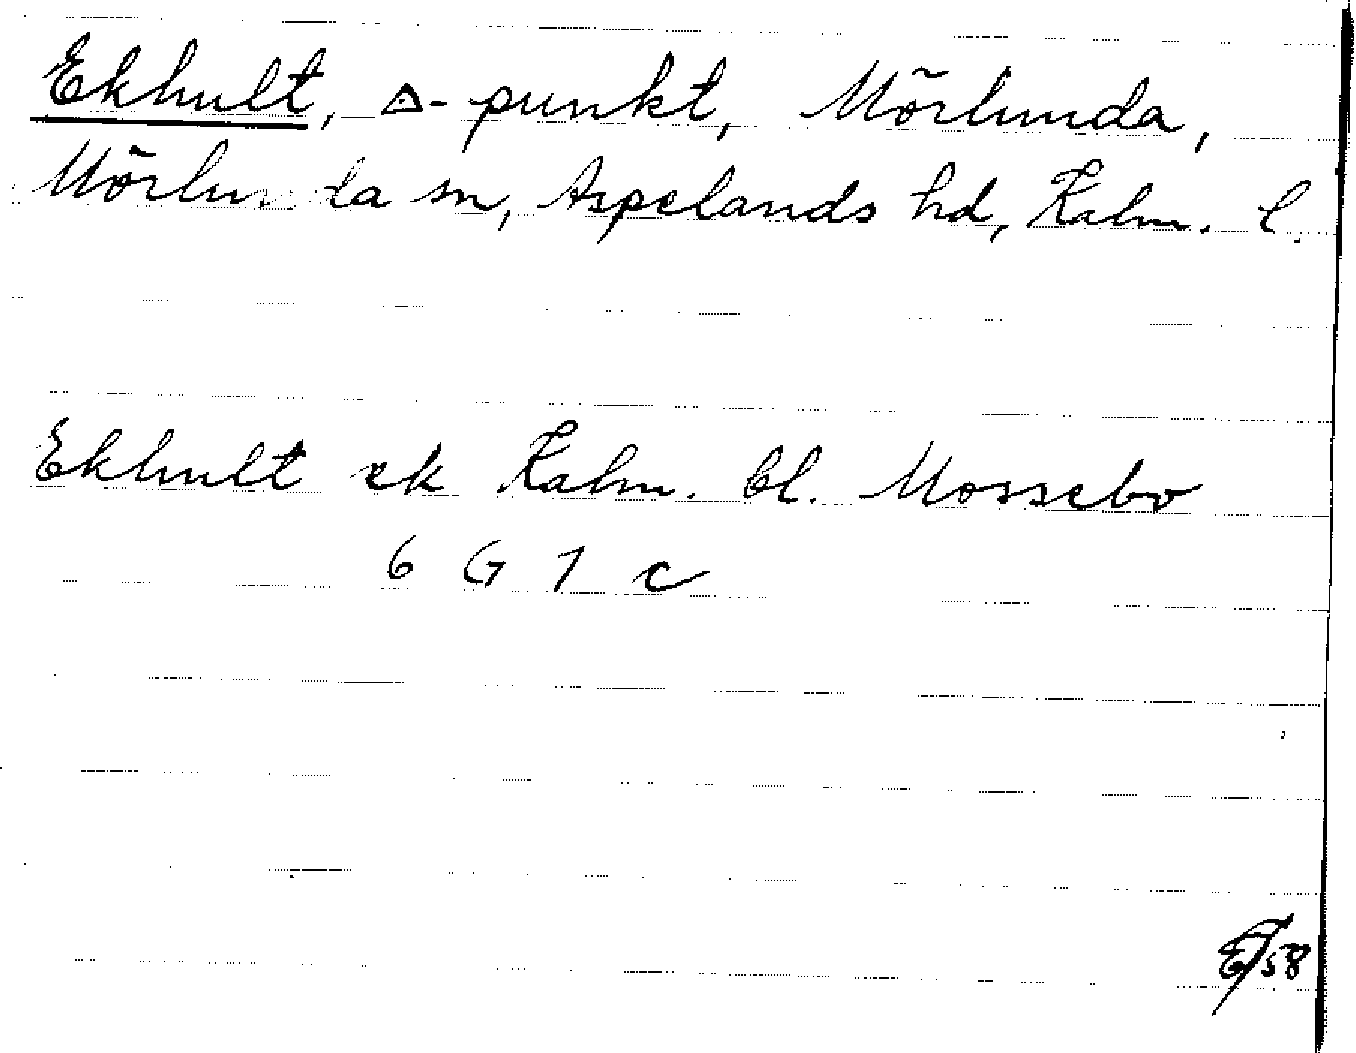 Ekhult, △-punkt, Mörlunda,
Mörlunda sn, Aspelands hd, Kalm. l.
Ekhult ek Kalm. bl. Mossebo
6 G 1 c
E/58